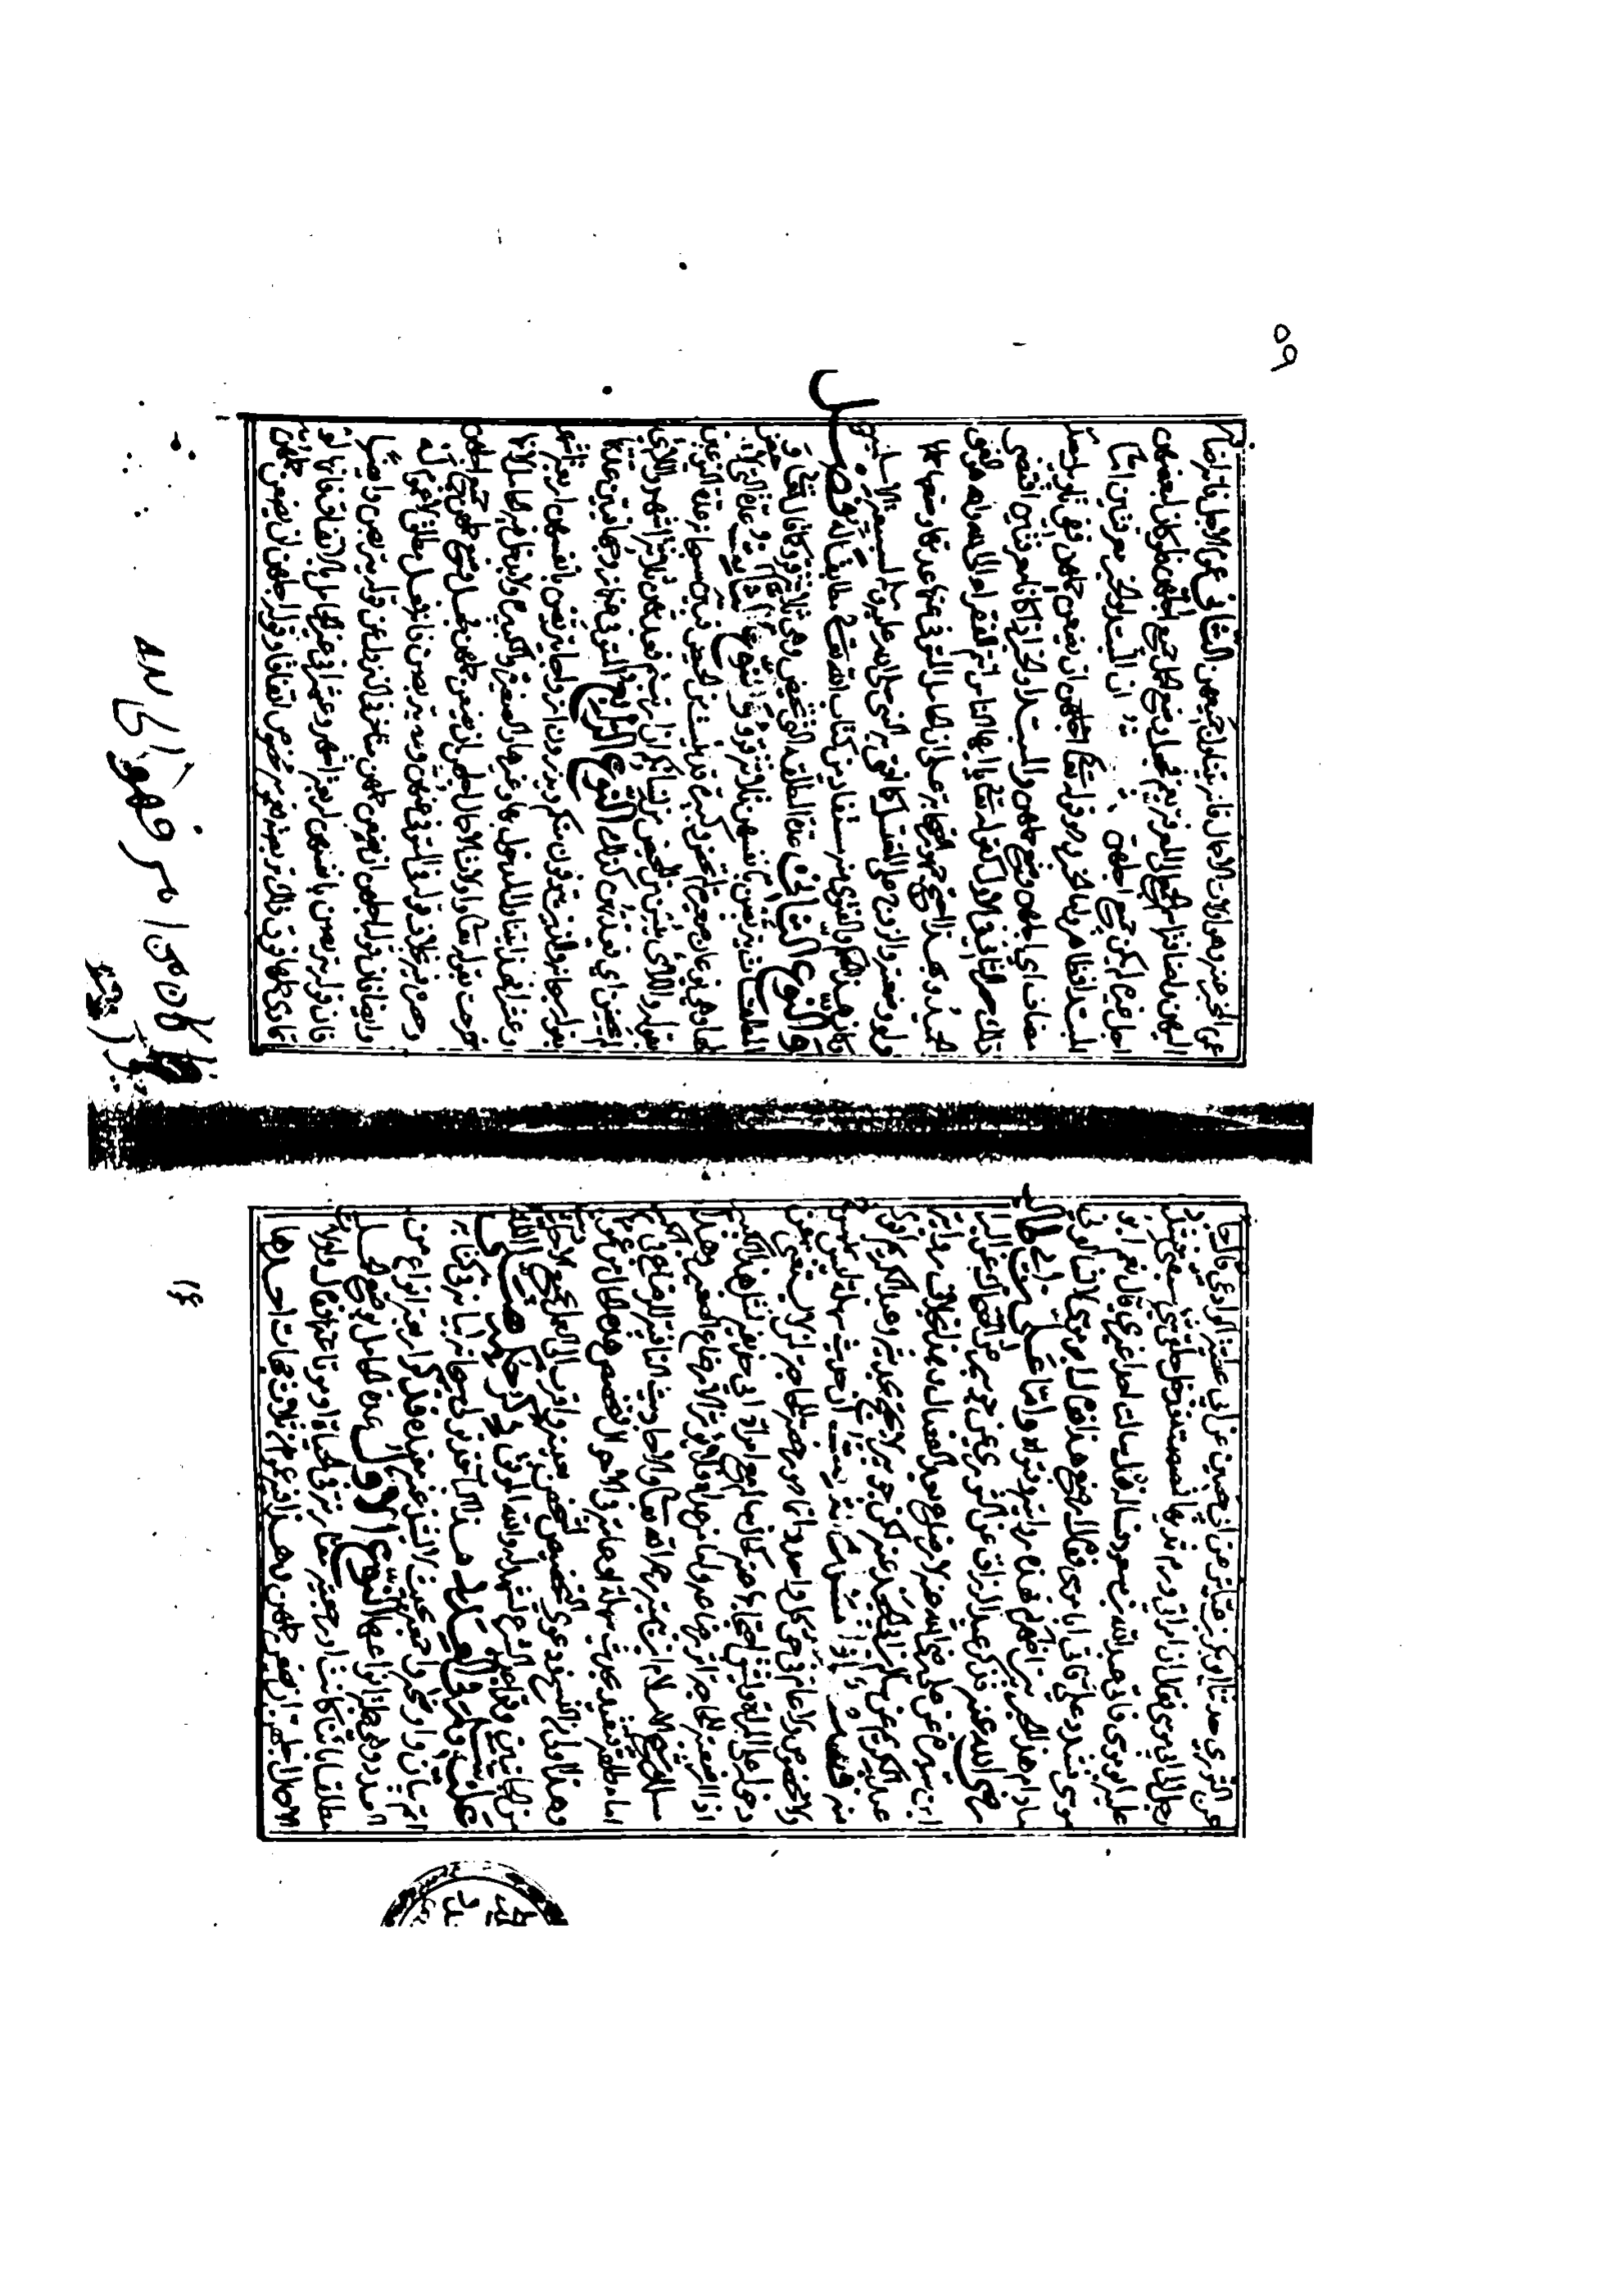 عن الثوري حدثنا ابو بكر بن عياش عن ابي حصين عن ابي عطية الوادعي قال جاء
رجل الى ابي موسى فقال ان امراتي ورم ثديها فمصصته فدخل حلقي شيء سبقني فشدد
عليه ابو موسى فاتى عبد الله بن مسعود فقال سالت احدا غيري قال نعم ابا
موسى فشدد علي فاتى ابا موسى فقال ارضيع هذا فقال ابو موسى لا تسالوني
ما دام هذا الحبر بين اظهركم فهذه روايته وفتواه واما علي بن ابي طالب
رضي الله عنه فذكر عبد الرزاق عن الثوري عن جويبر عن الضحاك عن النزال
ابن سبرة عن علي رضي الله عنه لا رضاع بعد الفصال وهذا خلاف رواية
عبد الكريم عن سالم بن ابي الجعد عن ابيه عنه لكن جويبر لا يحتج بحديثه وعبد الكريم اقوى
منه فصل ان حديث سهلة ليس بمنسوخ
ولا مخصوص ولا عام في حق كل واحد وانما هو رخصة للحاجة لمن لا يستغني عن
دخوله على المراة ويشق احتجابها عنه كحال سالم مع امراة ابي حذيفة فمثل هذا الكبير
اذا ارضعته للحاجة اثر رضاعه واما من عداه فلا يؤثر الا رضاع الصغير وهذا مسلك
شيخ الاسلام ابن تيمية رحمه الله تعالى والاحاديث النافية للرضاع في الكبير
اما مطلقة فتقيد بحديث سهلة او عامة في الاحوال فتخصص هذه الحال من عمومها
وهذا اولى من النسخ ودعوى التخصيص بشخص بعينه واقرب الى العمل بجميع الاحاديث
من الجانبين وقواعد الشرع تشهد له والله الموفق ذكر حكمه صلى الله
عليه وسلم في العدد هذا الباب قد تولى سبحانه بيانه في كتابه
اتم بيان واوضحه واجمعه بحيث لا تشذ عنه معتدة فذكر اربعة انواع من
العدد وهي جملة انواعها النوع الاول عدة الحامل بوضع الحمل
مطلقا بائنة كانت او رجعية مفارقة في الحياة او متوفى عنها فقال واولات
الاحمال اجلهن ان يضعن حملهن وهذا فيه عموم من ثلاث جهات احدها
٥٩
عموم المخبر عنه وهو اولات الاحمال فانه يتناول جميعهن الثاني عموم الاجل فانه اضافه
اليهن واضافة اسم الجمع الى المعرفة يعم فجعل وضع الحمل جميع اجلهن فلو كان لبعضهن
اجل غيره لم يكن جميع اجلهن ان المبتدا والخبر معرفتان اما
المبتدا فظاهر واما الخبر وهو قوله تعالى ان يضعن حملهن ففي تاويل مصدر
مضاف اي اجلهن وضع حملهن والمبتدا والخبر اذا كانا معرفتين اقتضى
ذلك حصر الثاني في الاول كقوله تعالى يا ايها الناس انتم الفقراء الى الله والله هو الغني
الحميد وبهذا احتج جمهور الصحابة على ان الحامل المتوفى عنها عدتها وضع حملها
ولو وضعته والزوج على المغتسل كما افتى به النبي صلى الله عليه وسلم لسبيعة الاسلمية
وكان هذا الحكم والفتوى منه مشتقا من كتاب الله مطابقا له فصل
والنوع الثاني عدة المطلقة التي تحيض وهي ثلاثة قروء كما قال تعالى
والمطلقات يتربصن بانفسهن ثلاثة قروء النوع الثالث عدة التي لا حيض
لها وهي نوعان صغيرة لا تحيض وكبيرة قد يئست من الحيض فبين سبحانه عدة النوعين
بقوله واللائي يئسن من المحيض من نسائكم ان ارتبتم فعدتهن ثلاثة اشهر واللائي
لم يحضن اي فعدتهن كذلك النوع الرابع المتوفى عنها زوجها فبين عدتها
بقوله سبحانه والذين يتوفون منكم ويذرون ازواجا يتربصن بانفسهن اربعة اشهر
وعشرا فهذا يتناول المدخول بها وغيرها والصغيرة والكبيرة ولا تدخل فيه الحامل لانها
خرجت بقوله واولات الاحمال اجلهن ان يضعن حملهن فجعل وضع حملهن جميع اجلهن
وحصره فيه بخلاف قوله في المتوفى عنهن يتربصن فانه فعل مطلق لا عموم له
وايضا فان قوله اجلهن ان يضعن حملهن متاخر في النزول عن قوله يتربصن وايضا
فان قوله يتربصن بانفسهن اربعة اشهر وعشرا في غير الحامل بالاتفاق فانها لو
تمادى حملها فوق ذلك تربصته فعمومها مخصوص اتفاقا وقوله اجلهن ان يضعن حملهن